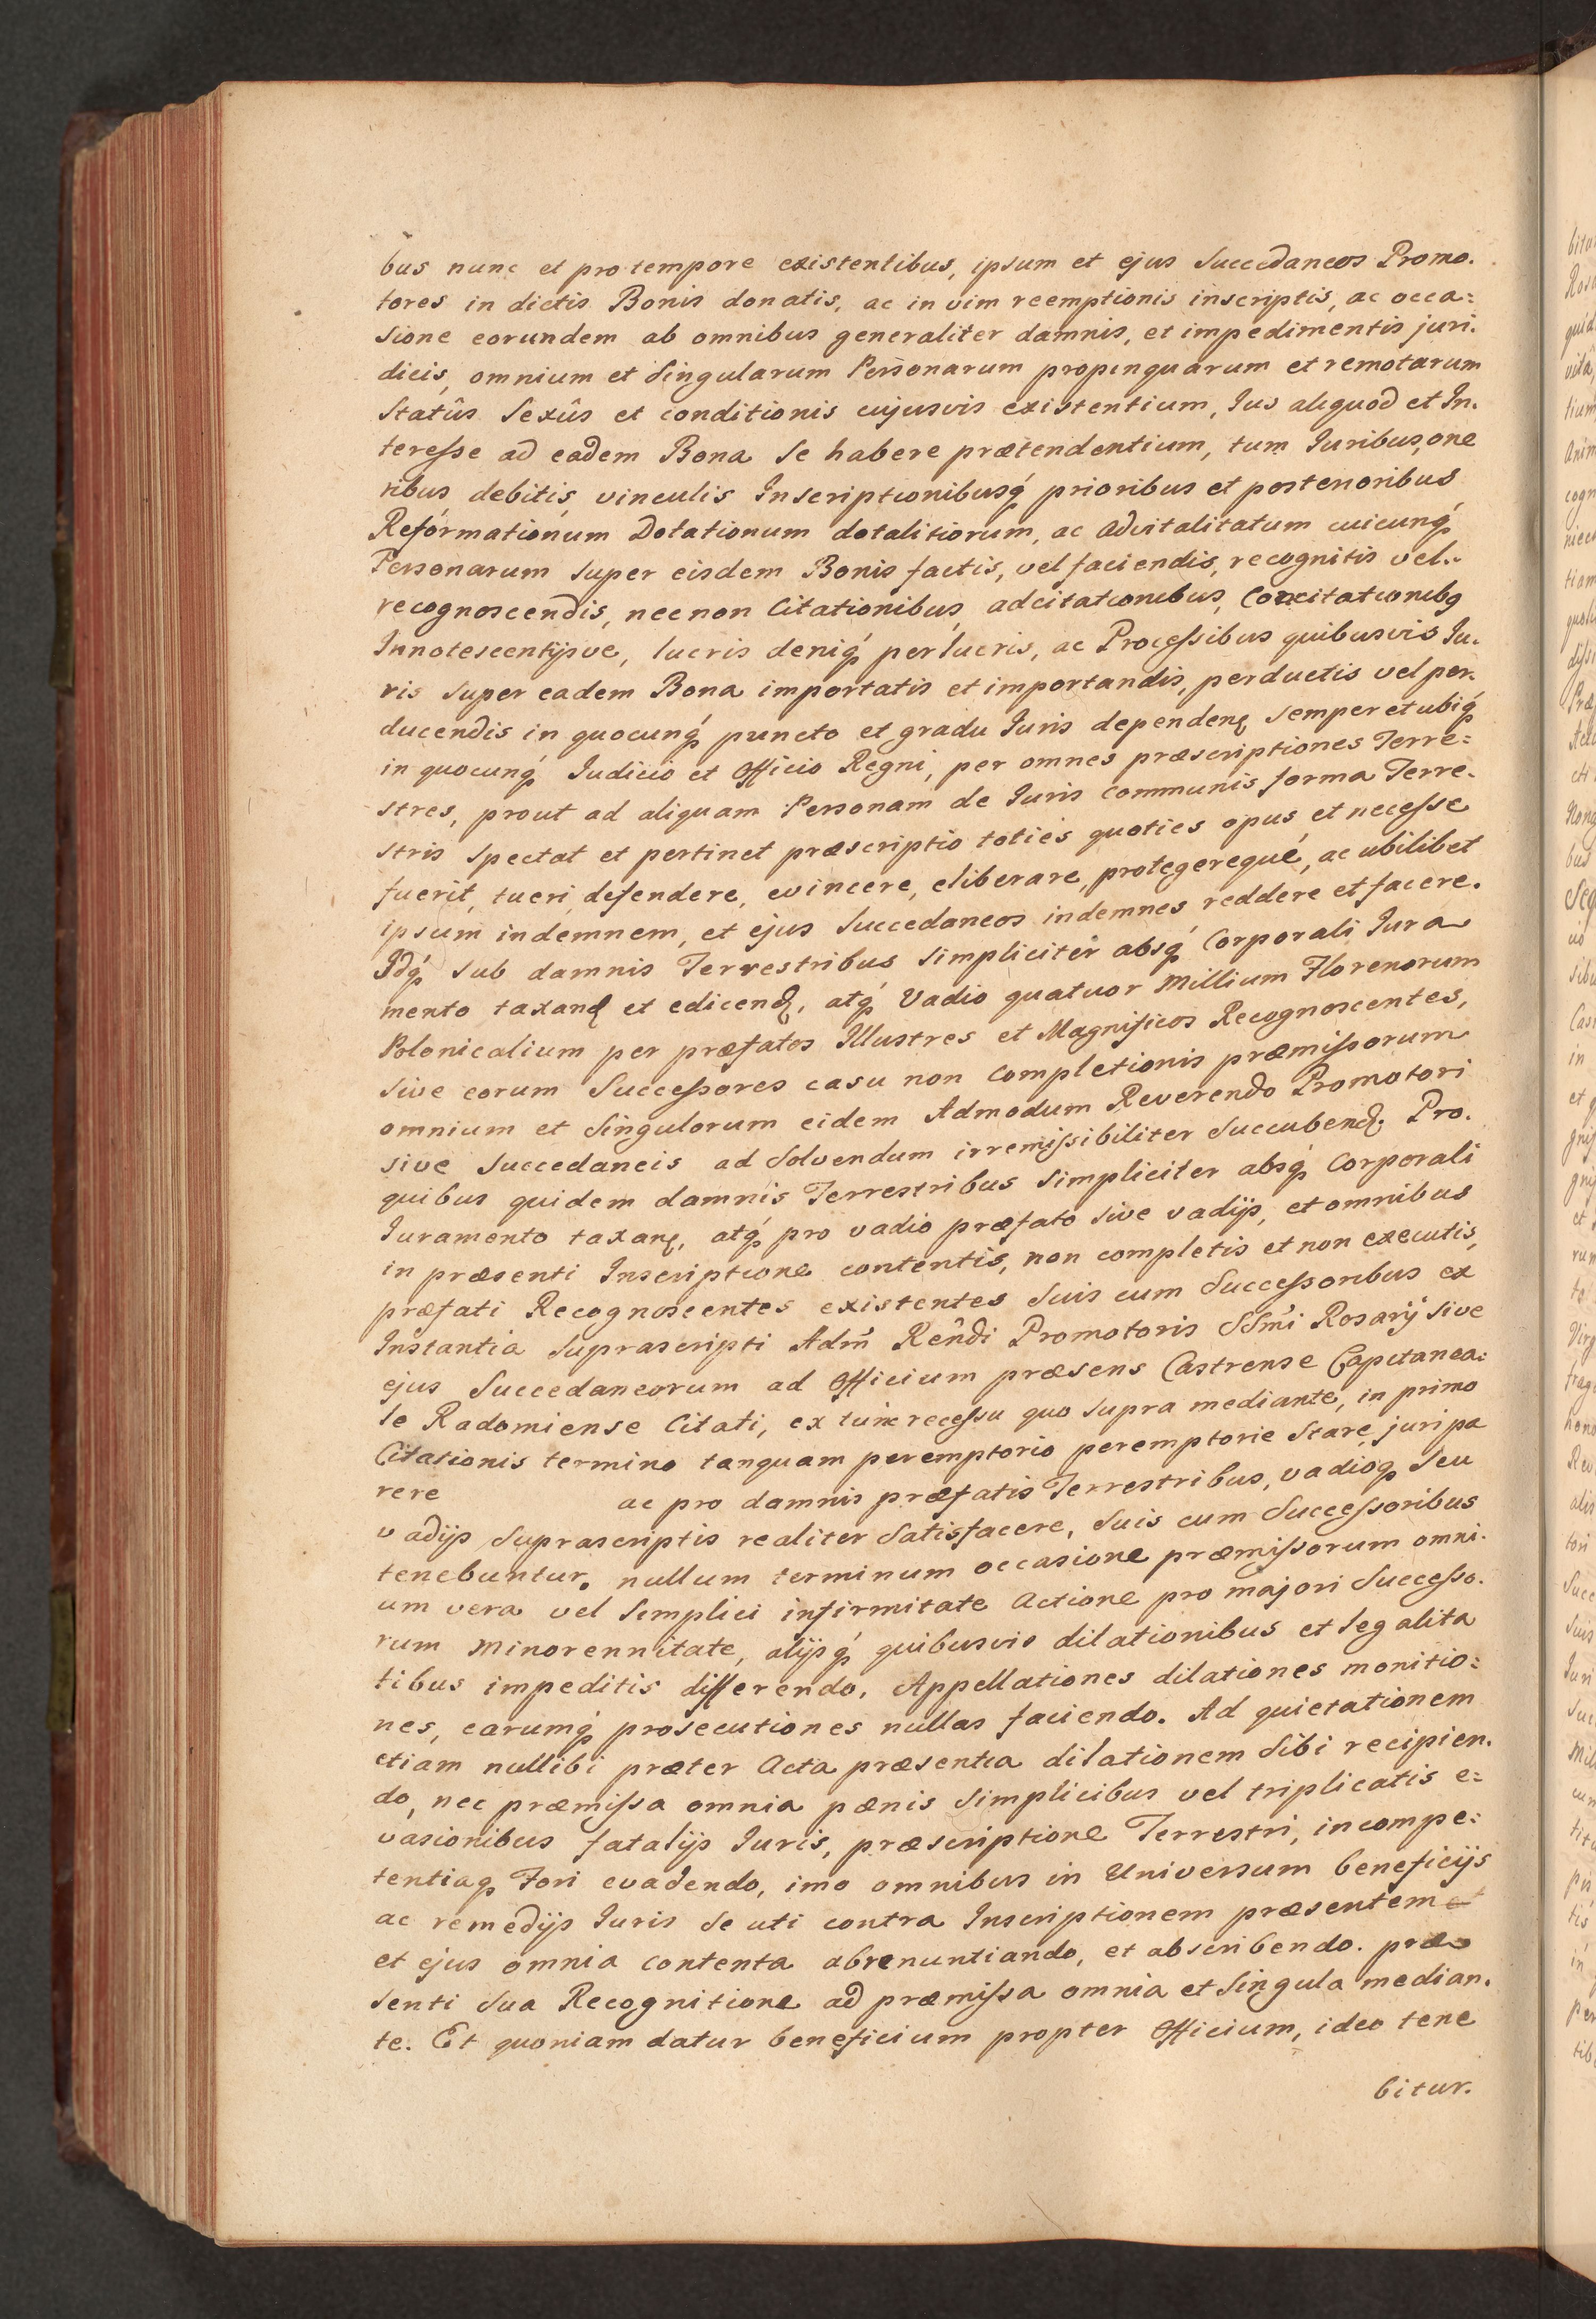 bus nunc et pro tempore existentibus, ipsum et ejus Succedaneos Promo.
tores in dictis Bonis donatis, ac in vim reemptionis inscriptis, ac occa:
sione eorundem ab omnibus generaliter damnis, et impedimentis juri.
dicis, omnium et Singularum Personarum propinquarum et remotarum
Statûs Sexûs et conditionis cujusvis existentium, Jus aliquod et In.
teresse ad eadem Bona se habere prætendentium, tum Juribus, one
ribus debitis vinculis Inscriptionibusq́ prioribus et posterioribus
Reformationum Dotationum dotalitiorum, ac advitalitatum cuicunq́
Personarum super eisdem Bonis factis, vel faciendis, recognitis vel..
recognoscendis, necnon Citationibus, adcitationibus, Concitationibq
Innotescentijsve, lucris deniq́ perlucris, ac Processibus quibusvis Ju.
ris super eadem Bona importatis et importandis, perductis vel per.
ducendis in quocunq́ puncto et gradu Juris dependenę semper et ubiq́
in quocunq́ Judicio et Officio Regni, per omnes præscriptiones Terre:
stres, prout ad aliquam Personam de Juris communis forma Terre.
stris spectat et pertinet præscriptio toties quoties opus et necesse
fuerit, tueri, defendere, evincere, eliberare, protegereque, ac ubilibet
ipsum indemnem, et ejus Succedaneos indemnes reddere et facere.
Idq́ sub damnis Terrestribus simpliciter absq́ Corporali Jura
mento taxanđ et edicenđ, atq́ Vadio quatuor Millium Florenorum
Polonicalium per præfatos Illustres et Magnificos Recognoscentes,
sive eorum Successores casu non completionis præmissorum
omnium et Singulorum eidem Admodum Reverendo Promotori
sive Succedaneis ad Solvendum irremissibiliter Succubenđ. Pro.
quibus quidem damnis Terrestribus simpliciter absq́ Corporali
Juramento taxanę, atq́ pro vadio præfato sive vadijs, et omnibus
in præsenti Inscriptione contentis, non completis et non executis,
præfati Recognoscentes existentes suis cum Successoribus ex
Instantia Suprascripti Adm̃ Rên̂di Promotoris SSm̃i Rosarij sive
ejus Succedaneorum ad Officium præsens Castrense Capitanea:
le Radomiense Citati, ex tunc recessu quo supra mediante, in primo
Citationis termino tanquam peremptorio peremptorie Stare, juri pa
rere ac pro damnis præfatis Terrestribus, vadioq seu
vadijs Suprascriptis realiter Satisfacere, suis cum Successoribus
tenebuntur. nullum terminum occasione præmissorum omni.
um vera vel Simplici infirmitate Actione pro majori Successo.
rum Minorennitate, alijsq́ quibusvis dilationibus et legalita
tibus impeditis differendo, Appellationes dilationes monitio:
nes, earumq́ prosecutiones nullas faciendo. Ad quietationem
etiam nullibi præter Acta præsentia dilationem Sibi recipien.
do, nec præmissa omnia pænis Simplicibus vel triplicatis e:
vasionibus fatalijs Juris, præscriptione Terrestri, incompe:
tentiaq Fori evadendo, imo omnibus in Universum beneficijs
ac remedijs Juris se uti contra Inscriptionem præsentem et
et ejus omnia contenta abrenuntiando, et abscribendo. præ
senti Sua Recognitione ad præmissa omnia et Singula median.
te. Et quoniam datur beneficium propter Officium, ideo tene
bitur.